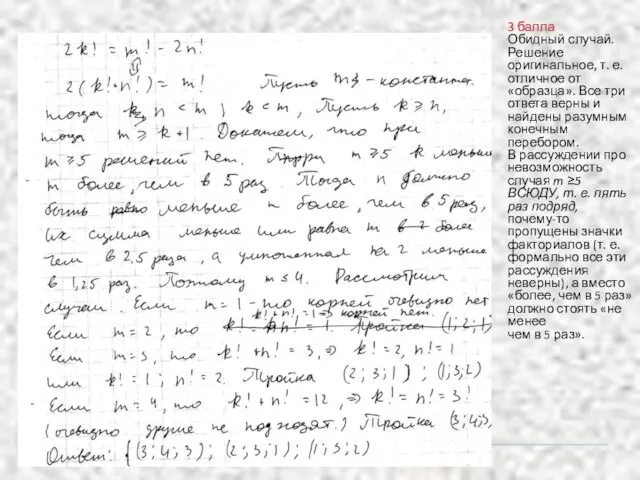 2k! = m! - 2n!
2(k!+n!) = m! Пусть m - константа.
тогда k, n < m; k < m, Пусть k ≥ n,
тогда m ≥ k+1. Докажем, что при
m ≥ 5 решений нет. При m ≥ 5 k меньше
m более, чем в 5 раз. Тогда n должно
быть равно меньше m более, чем в 5 раз,
их сумма меньше или равна m в 2 более
чем в 2,5 раза, а умноженная на 2 меньше
в 1,25 раз. Поэтому m ≤ 4. Рассмотрим
случаи. Если m = 1 - то корней очевидно нет
k!+n! = 1 => корней нет.
Если m = 2, то k! + n! = 1. Тройка (1; 2; 1)
Если m = 3, то k! + n! = 3, => k! = 2, n! = 1
или k! = 1; n! = 2. Тройка (2; 3; 1); (1; 3; 2)
Если m = 4, то k! + n! = 12, => k! = n! = 3!
(очевидно другие не подходят) Тройка (3; 4; 3)
Ответ: {(3; 4; 3); (2; 3; 1); (1; 3; 2)
3 балла
Обидный случай.
Решение
оригинальное, т. е.
отличное от
«образца». Все три
ответа верны и
найдены разумным
конечным
перебором.
В рассуждении про
невозможность
случая m ≥5
ВСЮДУ, т. е. пять
раз подряд,
почему-то
пропущены значки
факториалов (т. е.
формально все эти
рассуждения
неверны), а вместо
«более, чем в 5 раз»
должно стоять «не
менее
чем в 5 раз».